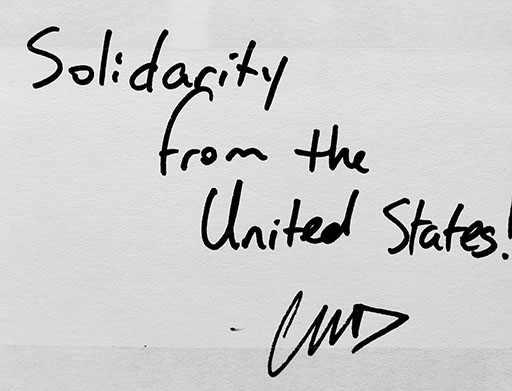 Solidarity
from the
United States!